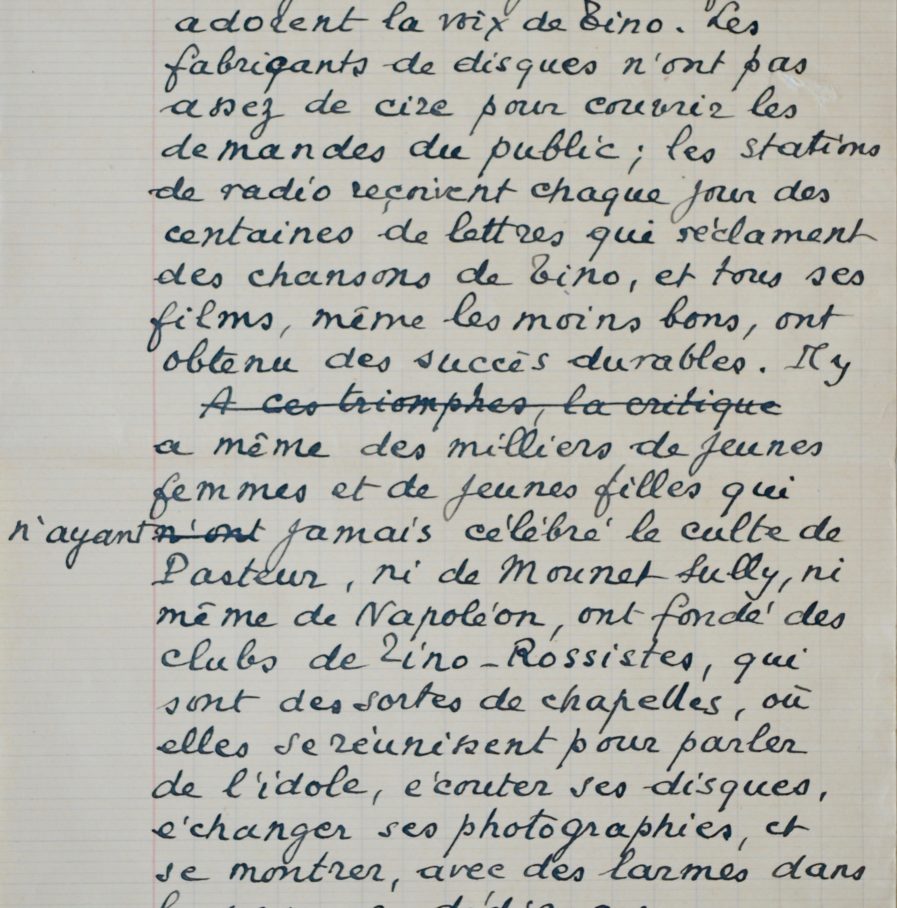 adorent la voix de Tino. Les
fabriquants de disques n'ont pas
assez de cire pour couvrir les
demandes du public ; les stations
de radio reçoivent chaque jour des
centaines de lettres qui réclament
des chansons de Tino, et tous ses
films, même les moins bons, ont
obtenu des succès durables. Il y
A ces triomphes, la critique
a même des milliers de jeunes
femmes et de jeunes filles qui
n'ayant n'ont jamais célébré le culte de
Pasteur, ni de Mounet Sully, ni
même de Napoléon, ont fondé des
clubs de Tino-Rossistes, qui
sont des sortes de chapelles, où
elles se réunissent pour parler
de l'idole, écouter ses disques,
échanger ses photographies, et
se montrer, avec des larmes dans